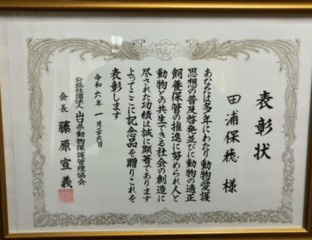 表彰状
田浦保穂 様
あなたは多年にわたり動物愛護
思想の普及啓発並びに動物の適正
飼養保管の推進に努められ人と
動物との共生できる社会の創造に
尽された功績は誠に顕著であります
よってここに記念品を贈りこれを
表彰します
令和六年一月二十六日
公益社団法人 山口県動物保護管理協会
会長 藤原宣義